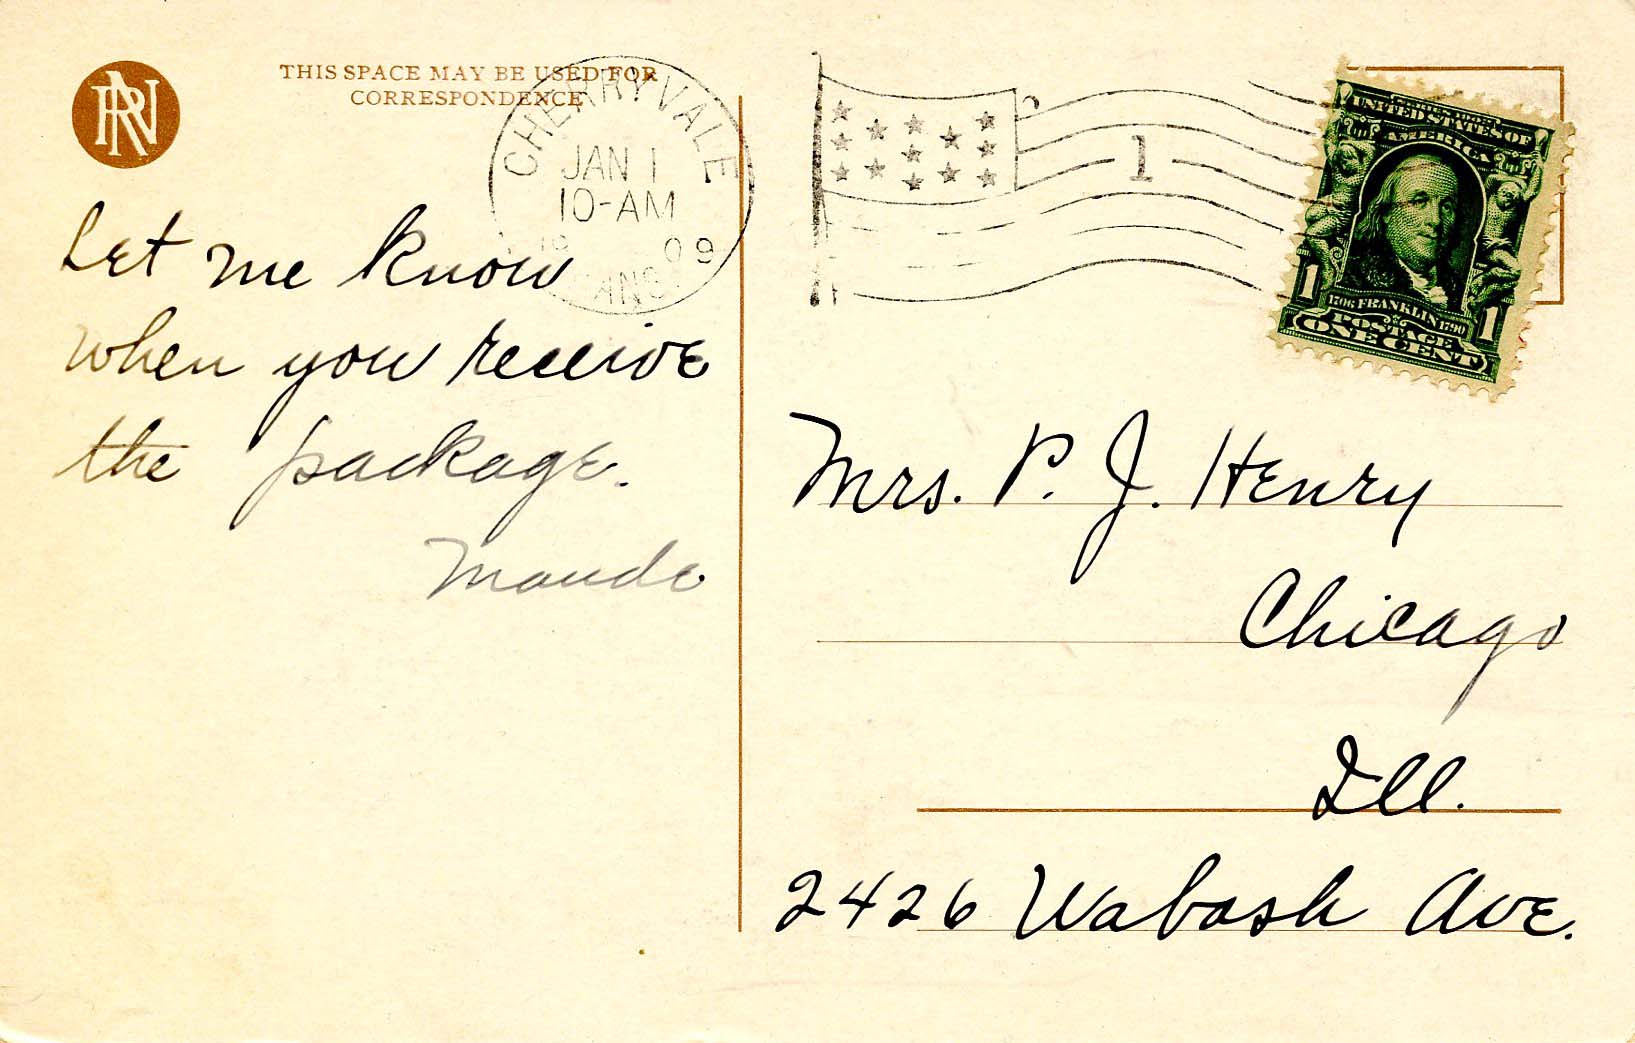 RN
THIS SPACE MAY BE USED FOR
CORRESPONDENCE
CHERRYVALE
JAN 1
10-AM
1909
KANS.
1
UNITED STATES OF
AMERICA
1
1706 FRANKLIN 1790
1
POSTAGE
ONE CENT
Let me know
when you receive
the package.
Maude
Mrs. P. J. Henry
Chicago
Ill.
2426 Wabash Ave.